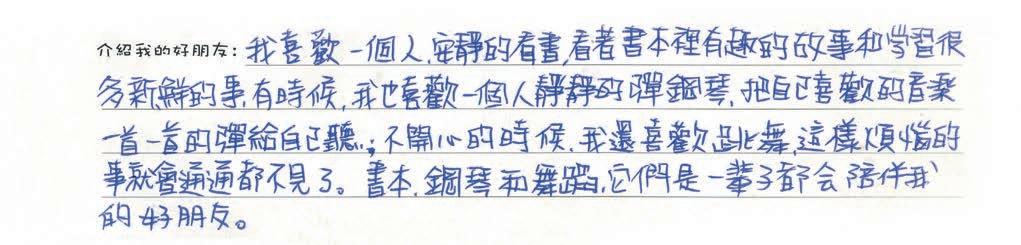 介紹我的好朋友：我喜歡一個人,安靜的看書,看著書本裡有趣的故事和学習很
多新鮮的事,有時候,我也喜歡一個人靜靜的彈鋼琴,把自已喜歡的音樂
一首一首的彈給自已聽；不開心的時候,我還喜歡跳舞,這樣煩惱的
事就會通通都不見了。書本,鋼琴和舞蹈,它們是一輩子都会陪伴我
的好朋友。